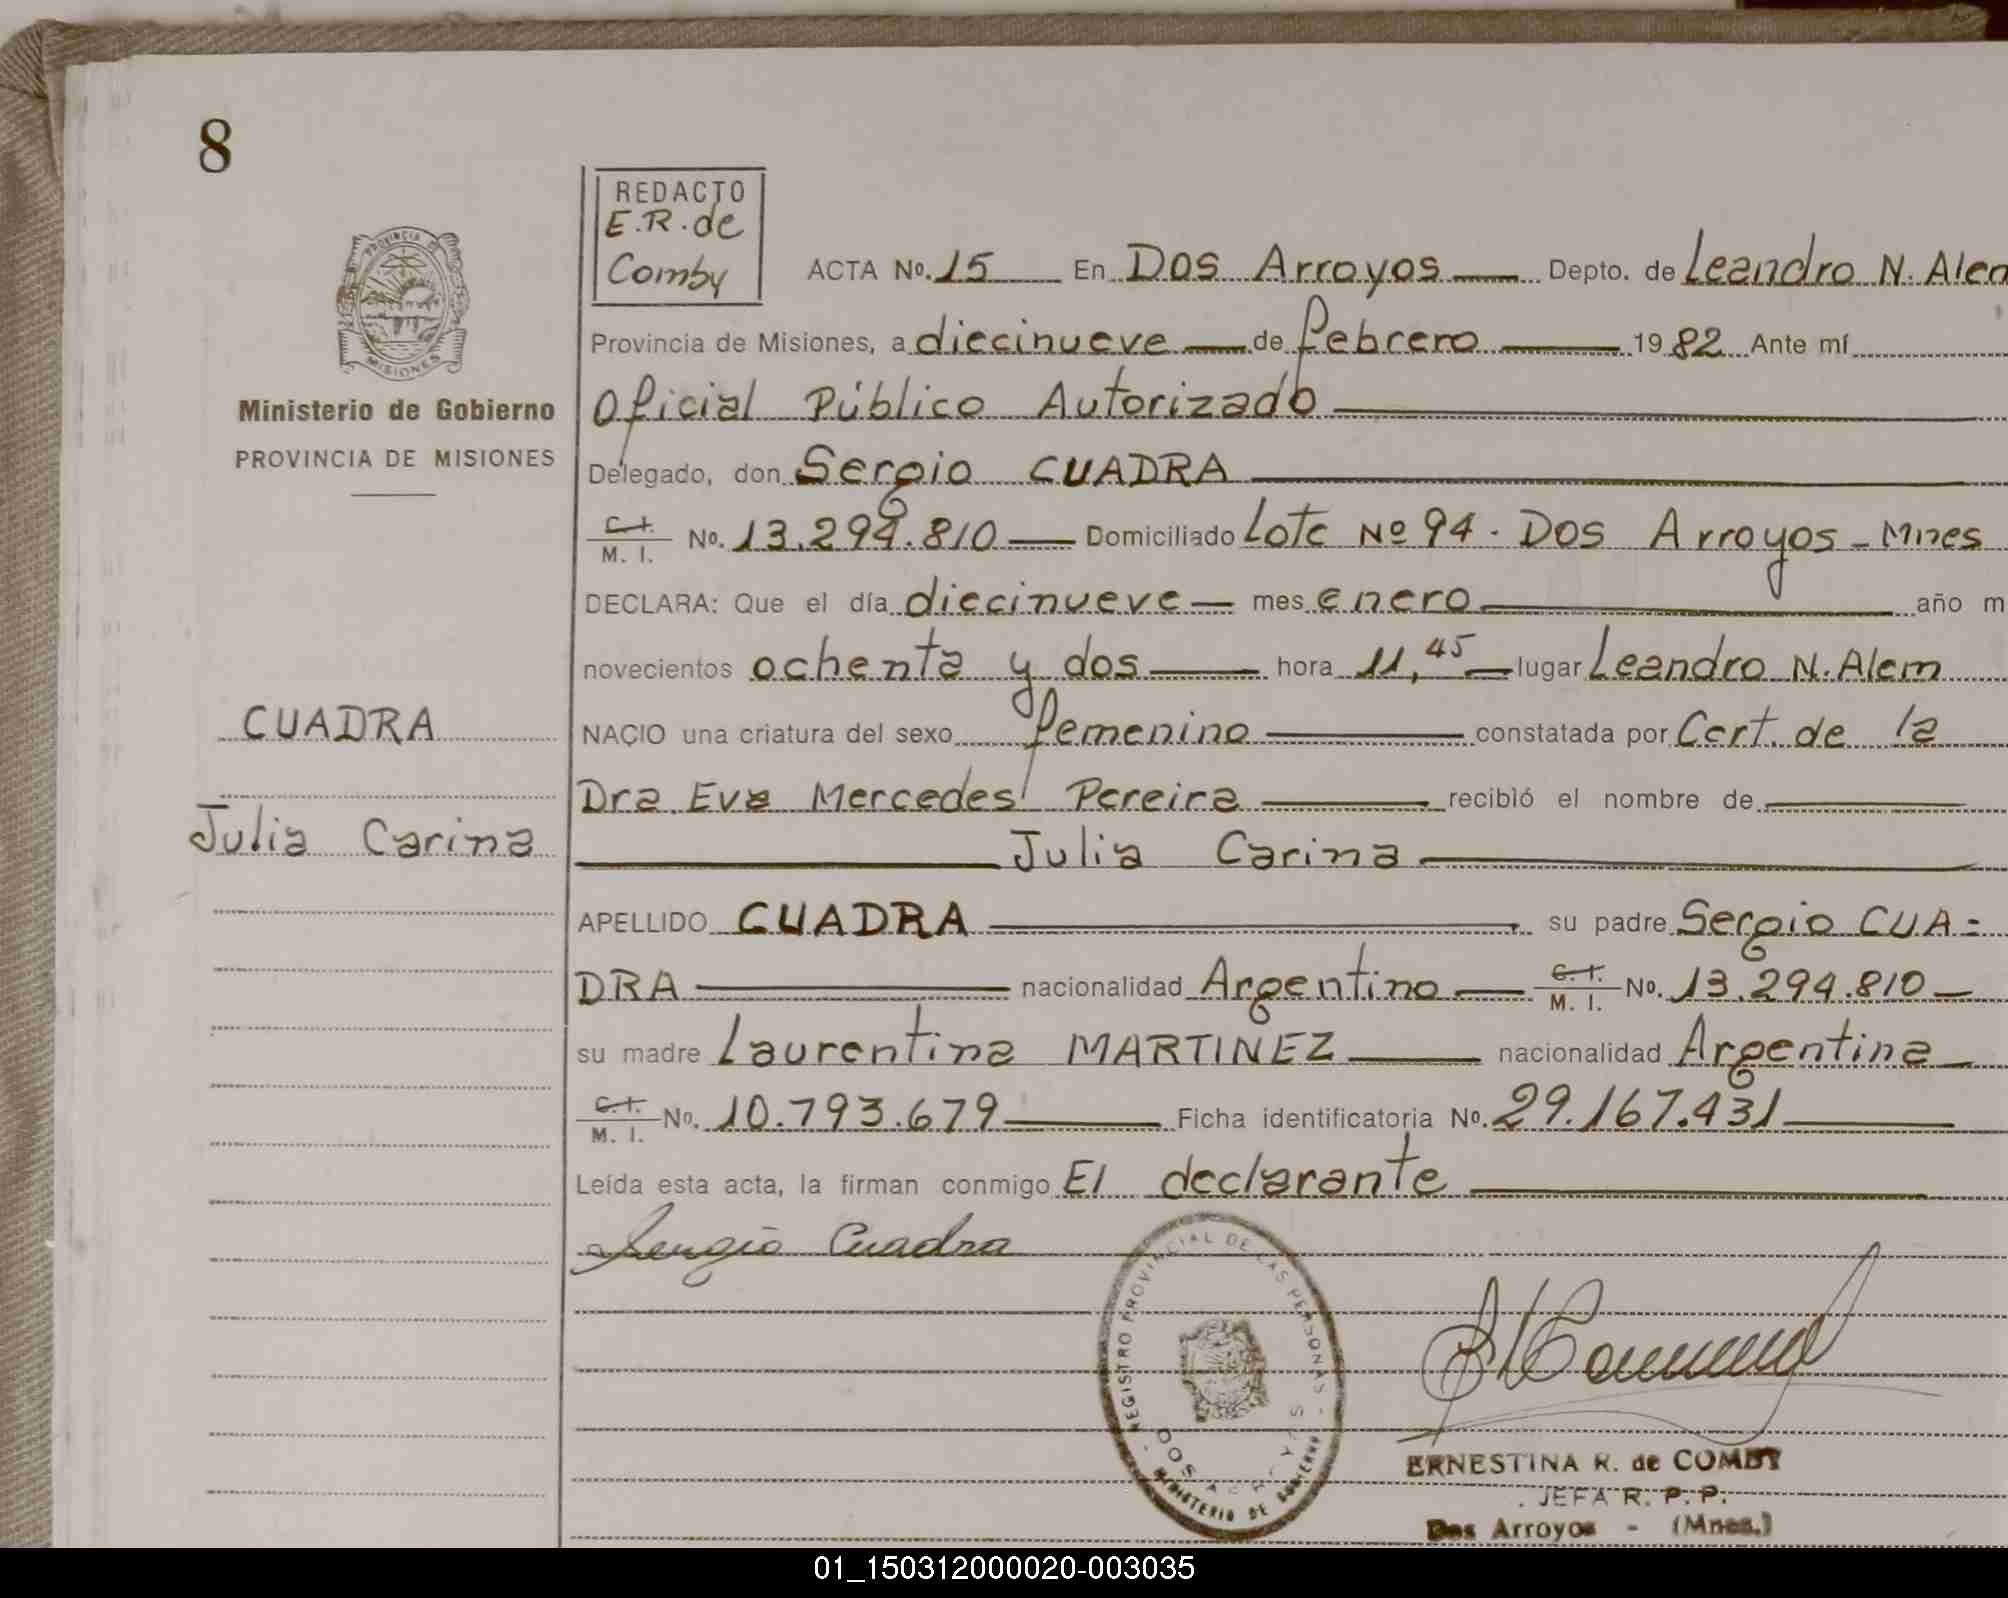 8
REDACTO
E.R. de
Comby
ACTA No. 15 En Dos Arroyos Depto. de Leandro N. Alem
Provincia de Misiones, a diecinueve de febrero 1982 Ante mí
Oficial Público Autorizado
Delegado, don Sergio CUADRA
C. I.
M. I. No. 13.294.810 Domiciliado Lote Nº 94 - Dos Arroyos - Mnes
DECLARA: Que el día diecinueve mes enero año m
novecientos ochenta y dos hora 11,45 lugar Leandro N. Alem
NACIO una criatura del sexo femenino constatada por Cert. de la
Dra. Eva Mercedes Pereira recibió el nombre de
Julia Carina
APELLIDO CUADRA su padre Sergio CUA=
DRA nacionalidad Argentino C. I. M. I. No. 13.294.810
su madre Laurentina MARTINEZ nacionalidad Argentina
C. I.
M. I. No. 10.793.679 Ficha identificatoria No. 29.167.431
Leída esta acta, la firman conmigo El declarante
Sergio Cuadra
PROVINCIA DE
MISIONES
Ministerio de Gobierno
PROVINCIA DE MISIONES
CUADRA
Julia Carina
REGISTRO PROVINCIAL DE LAS PERSONAS
DOS ARROYOS
MINISTERIO DE GOBIERNO
ERNESTINA R. de COMBY
JEFA R. P. P.
Dos Arroyos - (Mnes.)
01_150312000020-003035